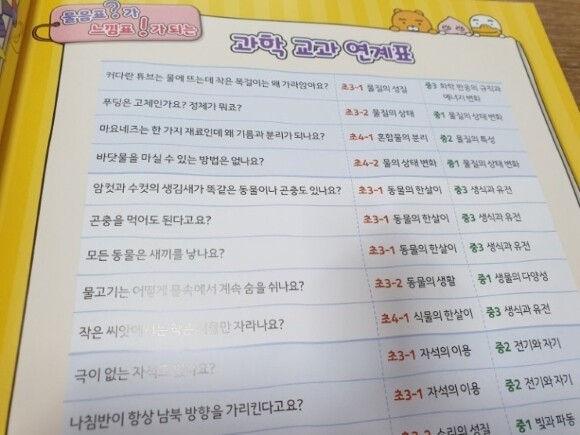 물음표?가
느낌표!가 되는
과학 교과 연계표
커다란 튜브는 물에 뜨는데 작은 목걸이는 왜 가라앉아요? 초3-1 물질의 성질 중3 화학 반응의 규칙과
에너지 변화
푸딩은 고체인가요? 정체가 뭐죠? 초3-2 물질의 상태 중1 물질의 상태 변화
마요네즈는 한 가지 재료인데 왜 기름과 분리가 되나요? 초4-1 혼합물의 분리 중2 물질의 특성
바닷물을 마실 수 있는 방법은 없나요? 초4-2 물의 상태 변화 중1 물질의 상태 변화
암컷과 수컷의 생김새가 똑같은 동물이나 곤충도 있나요? 초3-1 동물의 한살이 중3 생식과 유전
곤충을 먹어도 된다고요? 초3-1 동물의 한살이 중3 생식과 유전
모든 동물은 새끼를 낳나요? 초3-1 동물의 한살이 중3 생식과 유전
물고기는 어떻게 물속에서 계속 숨을 쉬나요? 초3-2 동물의 생활 중1 생물의 다양성
작은 씨앗에 자라나요? 초4-1 식물의 한살이 중3 생식과 유전
극이 없는 자석도 초3-1 자석의 이용 중2 전기와 자기
나침반이 항상 남북 방향을 가리킨다고요? 초3-1 자석의 이용 중2 전기와 자기
소리의 성질 중1 빛과 파동